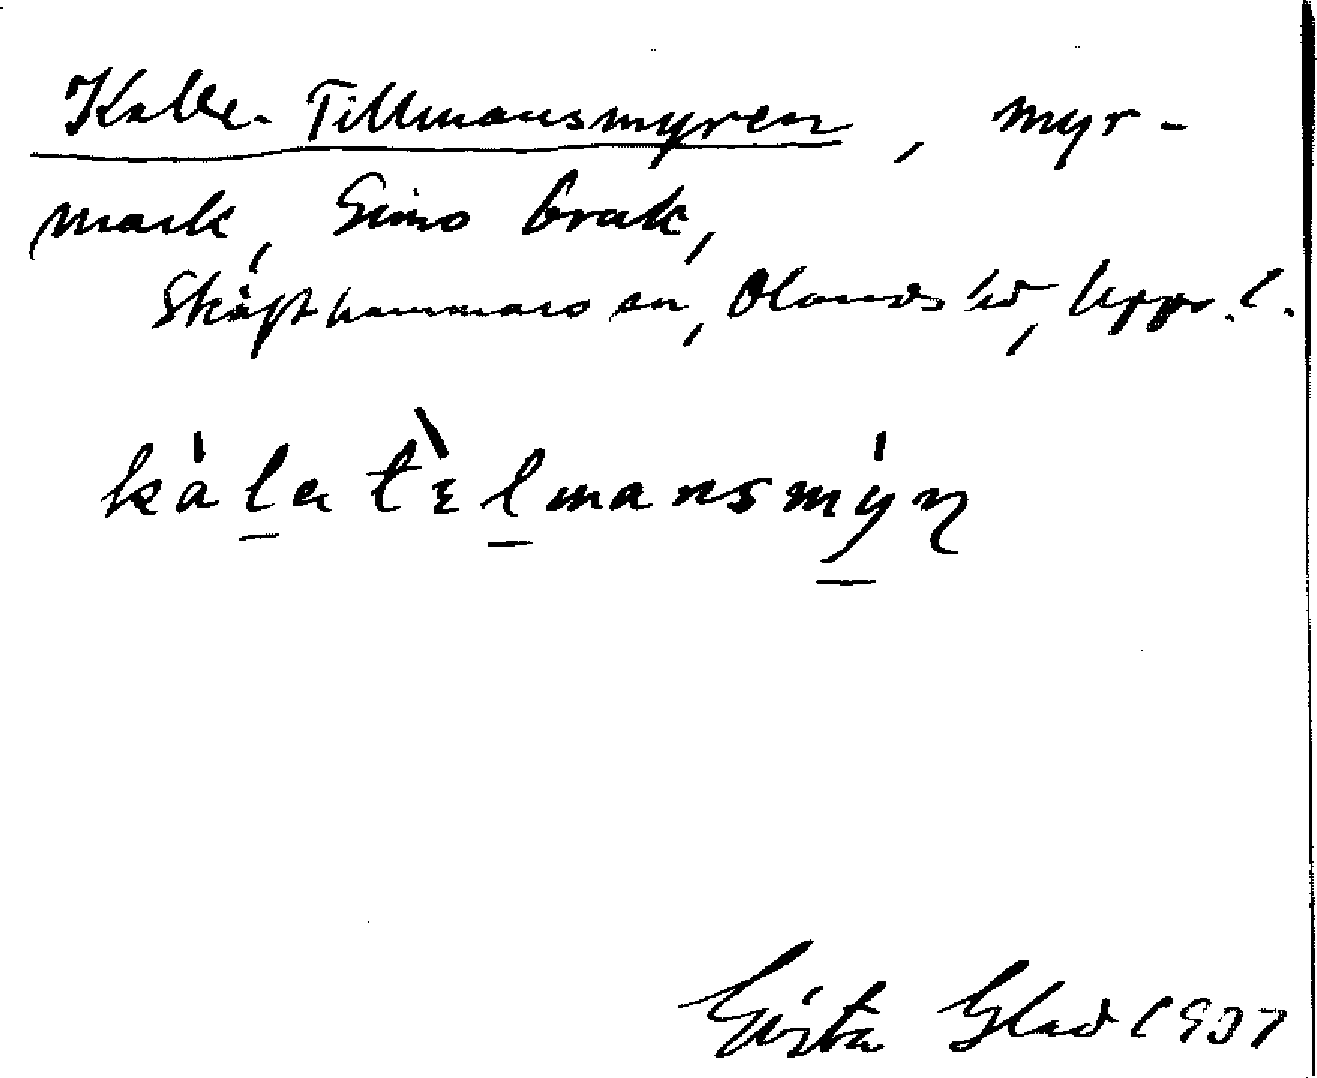 Kalle-Tillmansmyren, myr-
mark, Gimo bruk,
Skäfthammars sn, Olands hd, Upps. l.
kàla tèlmansmýn
Gösta Glad 1937